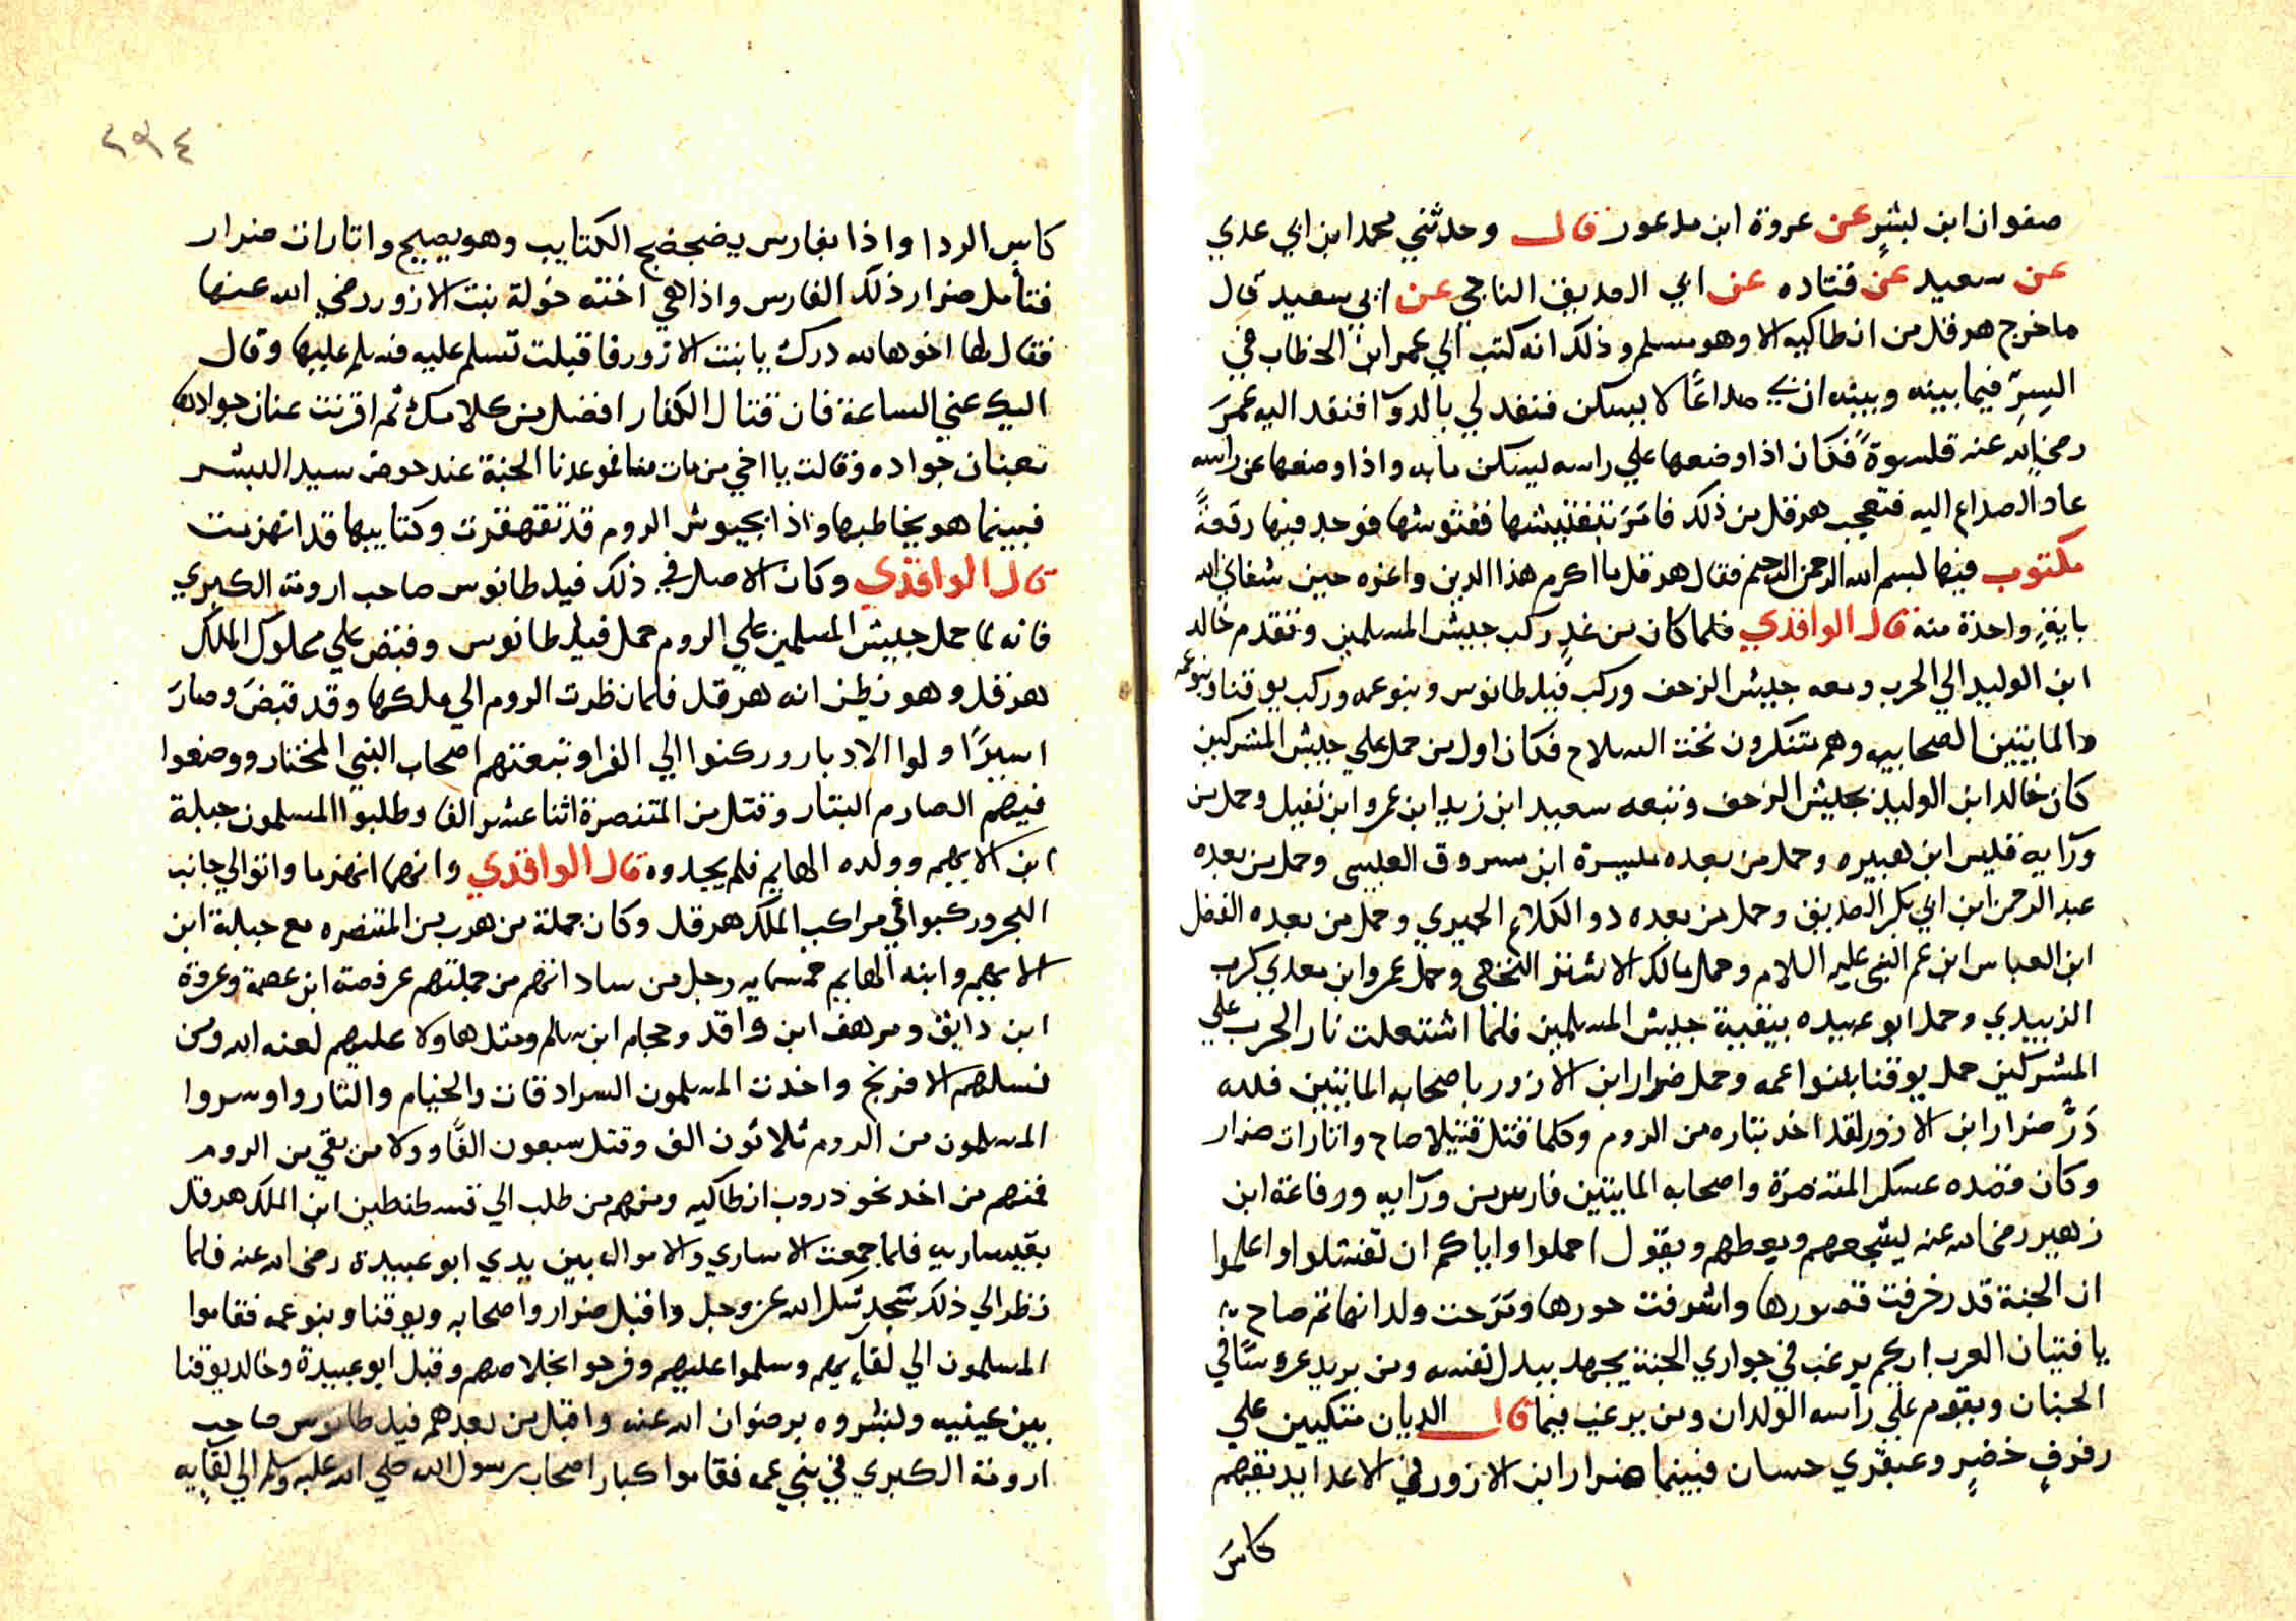 صفوان ابن بشرٍ عن عروة ابن مدعور قال وحدثني محمد ابن ابي عدي
عن سعيد عن قتاده عن ابي الصديق الناجي عن ابي سعيد قال
ما خرج هرقل من انطاكيه الا وهو مسلم وذلك انه كتب الي عمر ابن الخطاب في
السِرّ فيما بينه وبينه ان بي صداعًا لا يسكن فنفد لي بالدوآ فنفد اليه عمرَ
رضي الله عنه قلنسوةً فكان اذا وضعها علي راسه ليسكن ما به واذا وضعها عن راسه
عاد الصداع اليه فتعجب هرقل من ذلك فامَرَ بتفتيشها ففتوشها فوجد فيها رقعةً
مكتوب فيها بسم الله الرحمن الرحيم فقال هرقل ما اكرم هذا الدين واعزه حين شفاني الله
بايةٍ واحدة منه قال الواقدي فلما كان من غدٍ ركب جيش المسلمين وتقدم خالد
ابن الوليد الي الحرب ومعه جيش الزحف وركب فيلطانوس وبنو عمه وركب يوقنا وبنو عمه
والمايتين الصحابيه وهم متنكرون تحت السلاح فكان اول من حمل علي جيش المشركين
كان خالد ابن الوليد بجيش الزحف وتبعه سعيد ابن زيد ابن عمرو ابن نفيل وحمل من
ورآيه قليس ابن هبيره وحمل من بعده ميسرة ابن مسروق العبسي وحمل من بعده
عبد الرحمن ابن ابي بكر الصديق وحمل من بعده دو الكلاع الحميري وحمل من بعده الفضل
ابن العباس ابن عم النبي عليه السلام وحمل مالك الاشتر النخعي وحمل عمرو ابن معدي كرب
الزبيدي وحمل ابو عبيده ببقية جيش المسلمين فلما اشتعلت نار الحرب علي
المشركين حمل يوقنا ببنوا عمه وحمل ضرار ابن الازور باصحابه المايتين فلله
دَرُّ ضرار ابن الازور لقد اخد بتاره من الروم وكلما قتل قتيلا صاح واتارات ضرار
وكان قصده عسكر المتنصرة واصحابه المايتين فارس من ورآيه ورفاعة ابن
زهير رضي الله عنه ليشجعهم ويعظهم ويقول احملوا واياكم ان تفشلوا واعلموا
ان الجنة قد زخرفت قصورها واشرفت حورها ومَرَحت ولدانها ثم صاح
يا فتيان العرب ايكم يرغب في جواري الجنة يجهد ببدل نفسه ومن يريد عروسًا في
الجنان ويقوم علي رآسه الولدان ومن يرغب فيما قال الديان متكيين علي
رفرفٍ خضرٍ وعبقري حسان فبينما ضرار ابن الازور في الاعدا يديقهم
كاسَ
٢٩٤
كاس الردا واذا بفارس يضجضج الكتايب وهو يصيح واتارات ضرار
فتأمل ضرار ذلك الفارس واذا هي اخته خولة بنت الازور رضي الله عنها
فقال لها اخوها لله درك يا بنت الازور فاقبلت تسلم عليه فسلم عليها وقال
اليك عني الساعة فان قتال الكفار افضل من كلامك ثم اقرنت عنان جوادها
بعنان جواده وقالت يا اخي من مات منا فموعدنا الجنة عند حوض سيد البشر
فبينما هو يخاطبها واذا بجيوش الروم قد تقهقرت وكتايبها قد انهزمت
قال الواقدي وكان الاصل في ذلك فيلطانوس صاحب ارومة الكبري
فانه لما حمل جيش المسلمين علي الروم حمل فيلطانوس وقبض علي مملوك الملك
هرقل وهو يظن انه هرقل فلما نظرت الروم الي ملكها وقد قبضَ وصارَ
اسيرًا ولوا الادبار وركنوا الي الفرا وتبعتهم اصحاب النبي المختار ووضعوا
فيهم الصارم البتار وقتل من المتنصرة اثنا عشر الفا وطلبوا المسلمون جبلة
ابن الايهم وولده الهايم فلم يجدوه قال الواقدي وانهما انهزما واتوا الي جانب
البحر وركبوا في مراكب الملك هرقل وكان جملة من هرب من المتنصره مع جبلة ابن
الايهم وابنه الهايم خمسمايه رجل من ساداتهم من جملتهم عرفصة ابن عصمة وعروة
ابن دايق ومرهف ابن واقد وحجام ابن سالم ومثل هاولا عليهم لعنه الله ومن
نسلهم الافرنج واخدت المسلمون السرادقات والخيام والتاروا وسروا
المسلمون من الروم ثلاثون الف وقتل سبعون الفًا وولا من بقي من الروم
فمنهم من اخد نحو دروب انطاكيه ومنهم من طلب الي قسطنطين ابن الملك هرقل
بقيساريه فلما جمعت الاساري والاموال بين يدي ابو عبيدة رضي الله عنه فلما
نظر الي ذلك سَجد شكر الله عز وجل واقبل ضرار واصحابه ويوقنا وبنو عمه فقاموا
المسلمون الي لقايهم وسلموا عليهم وفرحوا بخلاصهم وقبل ابو عبيدة وخالد يوقنا
بين عينيه وبشروه برضوان الله عنه واقبل من بعدهم فيلطانوس صاحب
ارومة الكبري في بني عمه فقاموا كبار اصحاب رسول الله صلي الله عليه وسلم الي لقايه